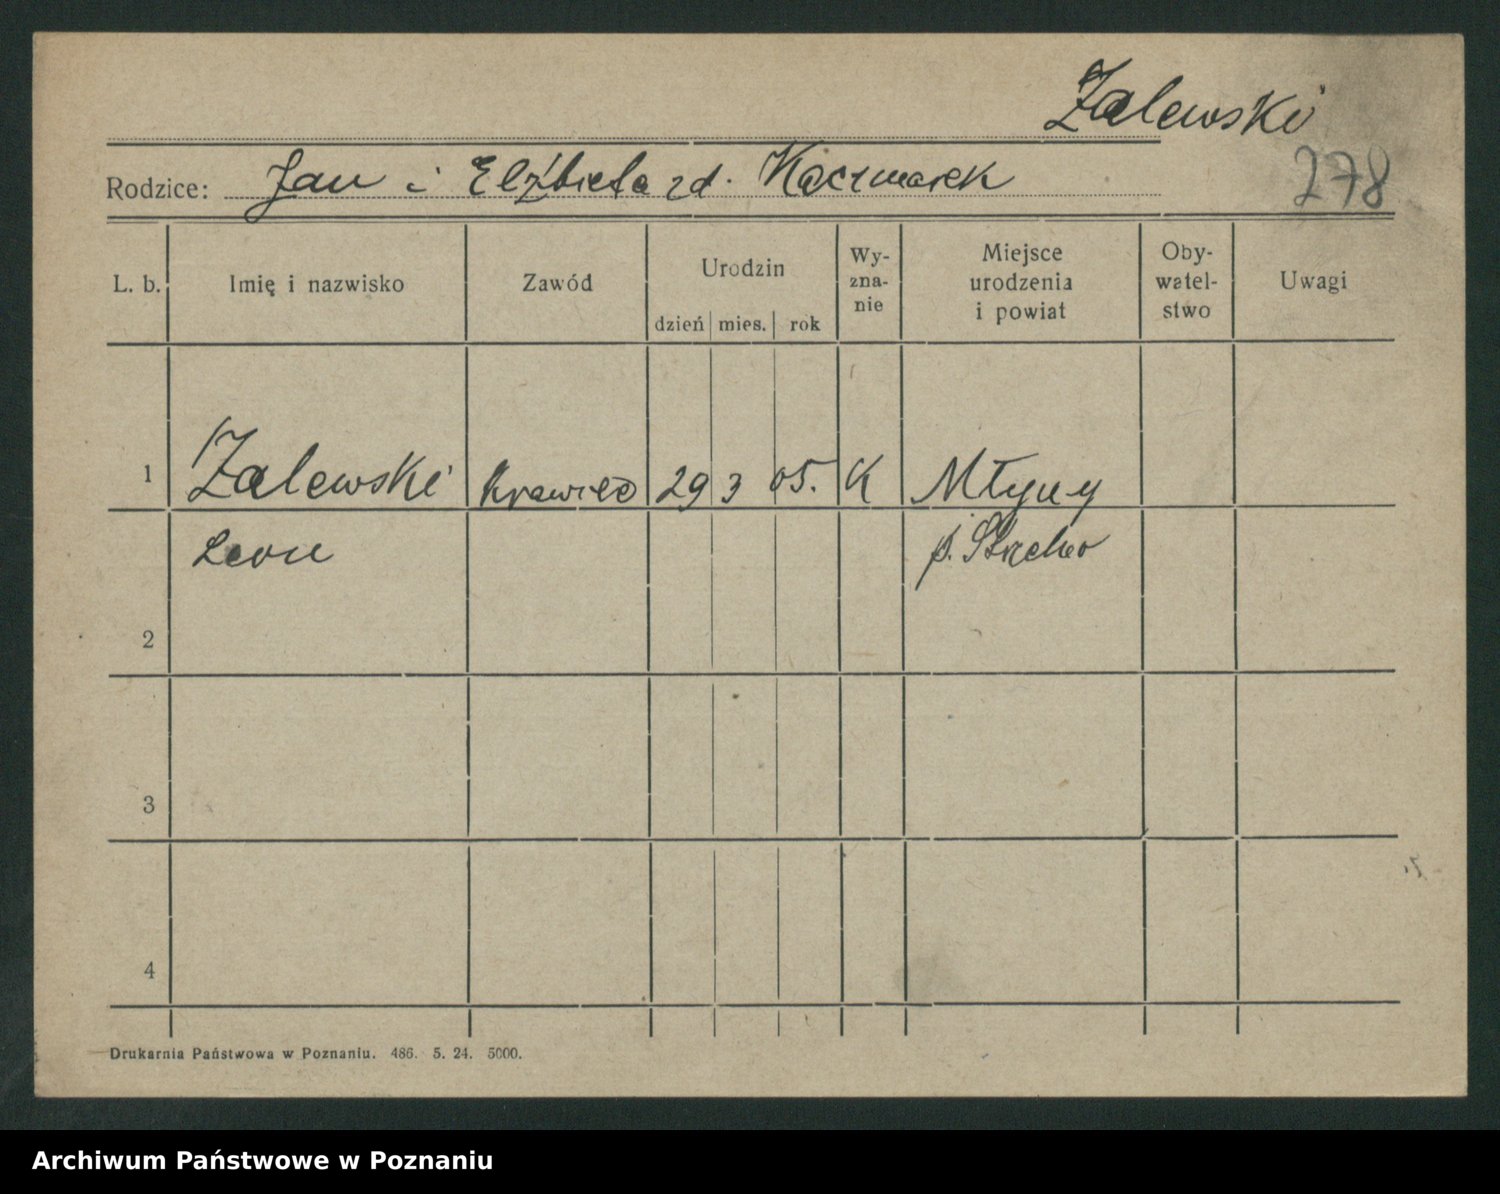 Zalewski
278
Rodzice: Jan i Elżbieta zd. Kaczmarek
L. b.
Imię i nazwisko
Zawód
Urodzin
dzień mies. rok
Wy-
zna-
nie
Miejsce
urodzenia
i powiat
Oby-
watel-
stwo
Uwagi
1 Zalewski krawiec 29 3 05. K Młyny
Leon p. Strzelno
2
3
4
Drukarnia Państwowa w Poznaniu. 486. 5. 24. 5000.
Archiwum Państwowe w Poznaniu